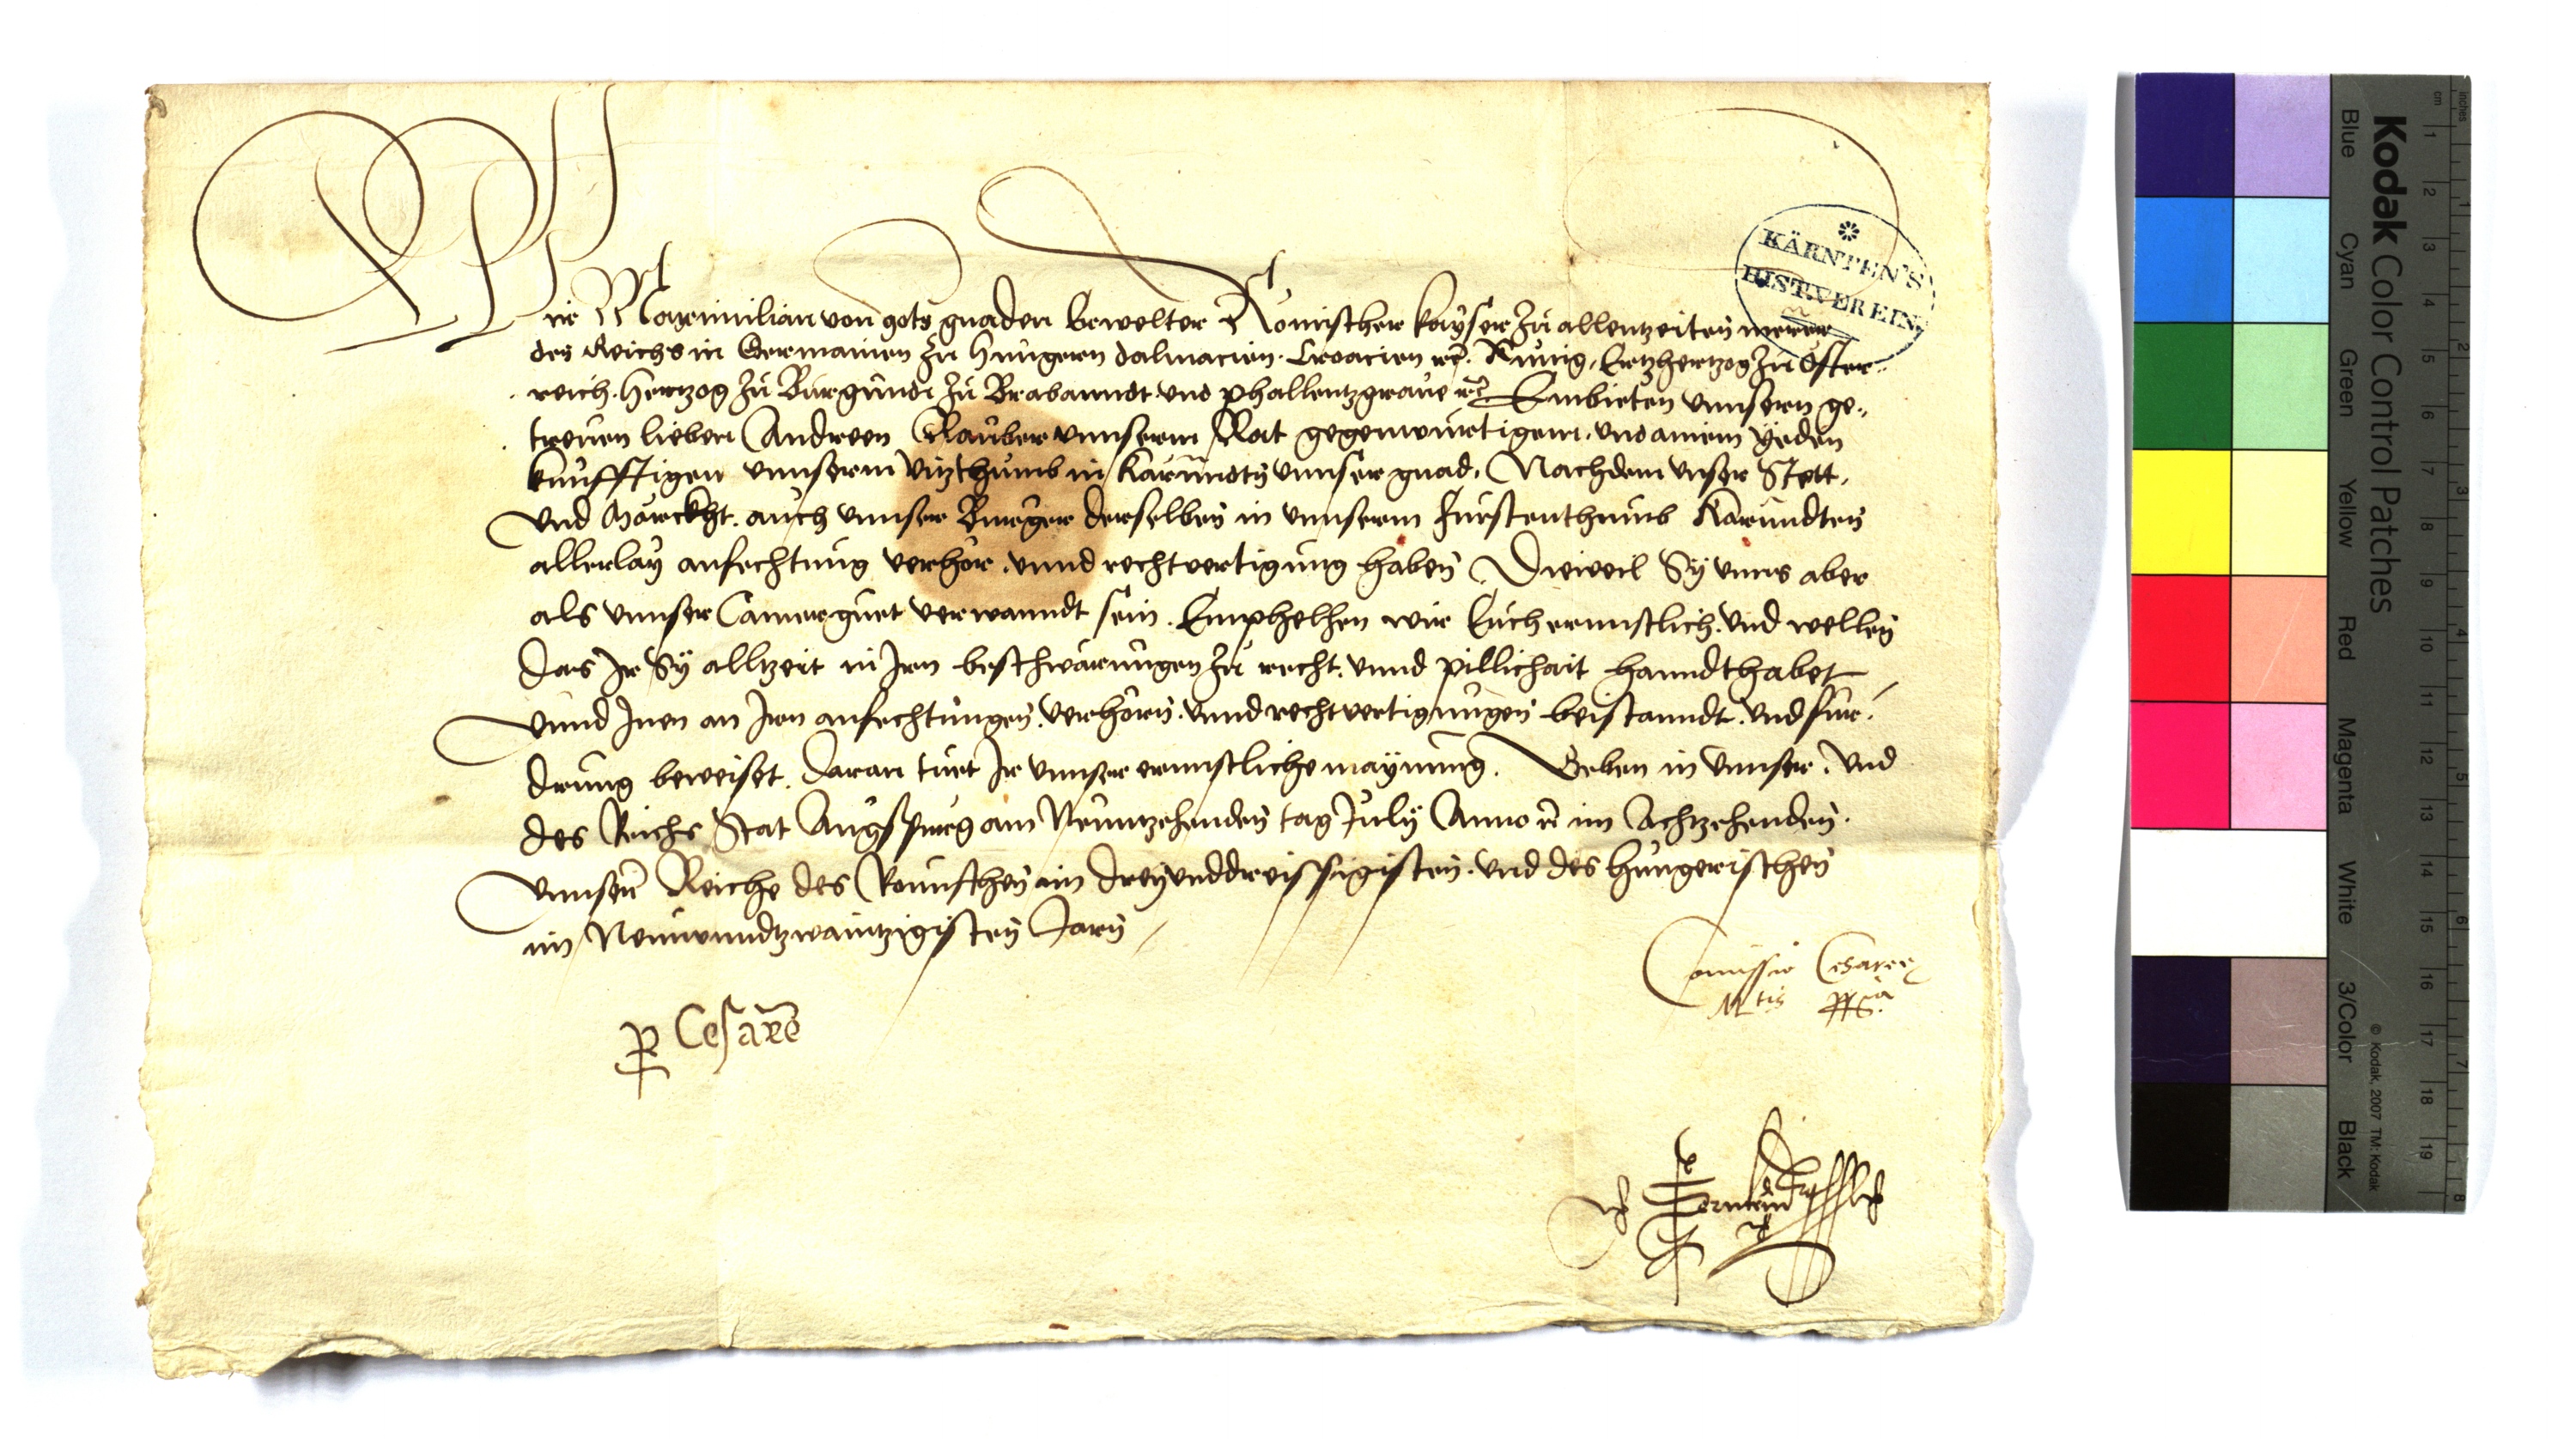 Wir Maximilian von gots gnaden Erwelter Romischer kayser zu allentzeiten merer
des Reichs in Germanien zu Hungern dalmacien. Croacien rc. Kunig, Ertzhertzog zu Öster„
reich. Hertzog zu Burgundi zu Brabanndt und phallentzgraue rc. Embieten unnsern ge„
treuen lieben Andreen Rauber unnserm Rat gegenwurtigem. und ainem yeden
kunfftigen unnserm vitzthumb in Karnndtn unnser gnad. Nachdem unser Stett.
und Märckht. auch unnser Burger derselben in unnserm Furstenthumb Kärnndten
allerlay anfechtung verhor. unnd rechtvertigung haben Dieweil Sy unns aber
als unnser Camerguet verwanndt sein. Emphelhen wir Euch ernnstlich. und wellen
Das Ir Sy alltzeit in Iren beschwärungen zu recht. unnd pillichait hanndthabet
unnd Inen an Iren anfechtungen. verhörn. unnd rechtvertigungen beistanndt. und fur„
drung beweiset. Daran tuet Ir unnser ernnstliche maynung. Geben in unnser. und
des Reichs Stat Augspurg am Neuntzehenden tag July Anno rc im Achtzehenden.
unnserr Reiche des Romischen im dreyunddreissigisten. und des hungerischen
im Neunundtzwaintzigisten Jarn
p Cesarem
Comissio Cesaree
Mtis ppa
KÄRNTEN'S
HIST.VEREIN
Kodak Color Control Patches
Blue Cyan Green Yellow Red Magenta White 3/Color Black
© Kodak, 2007 TM: Kodak
inches 1 2 3 4 5 6 7 8
cm 1 2 3 4 5 6 7 8 9 10 11 12 13 14 15 16 17 18 19